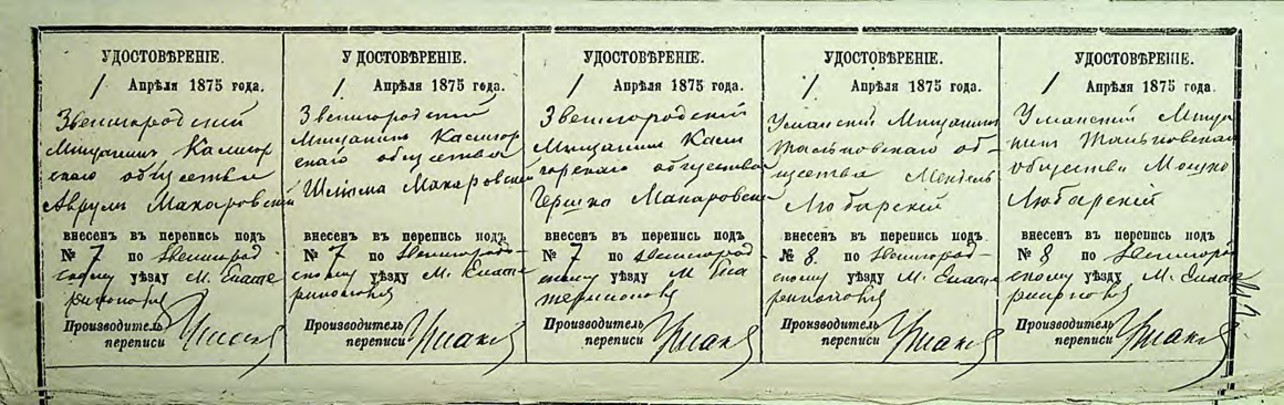 УДОСТОВѢРЕНІЕ.
1 Апрѣля 1875 года.
Звенигородскій
Мѣщанинъ Калигор
скаго общества
Аврумъ Макаровскій
внесенъ въ перепись подъ
№ 7 по Звенигород
скому уѣзду М. Екате
ринополя
Производитель
переписи
У ДОСТОВѢРЕНІЕ.
1 Апрѣля 1875 года.
Звенигородскій
Мѣщанинъ Калигор
скаго общества
Шлiома Макаровскій
внесенъ въ перепись подъ
№ 7 по Звенигород-
скому уѣзду М. Екате
ринополя
Производитель
переписи
УДОСТОВѢРЕНІЕ.
1 Апрѣля 1875 года.
Звенигородскій
Мѣщанинъ Кали
горскаго общества
Гершко Макаровскій
внесенъ въ перепись подъ
№ 7 по Звенигород
скому уѣзду М Ека
теринополя
Производитель
переписи
УДОСТОВѢРЕНІЕ.
1 Апрѣля 1875 года.
Уманскій Мѣщанинъ
Тальновскаго об-
щества Мендель
Любарскій
внесенъ въ перепись подъ
№ 8 по Звенигород-
скому уѣзду М. Екате
ринополя
Производитель
переписи
УДОСТОВѢРЕНІЕ.
1 Апрѣля 1875 года.
Уманскій Мѣща
нинъ Тальновскаго
общества Мошко
Любарскій
внесенъ въ перепись подъ
№ 8 по Звенигород
скому уѣзду М. Екате
ринополя
Производитель
переписи